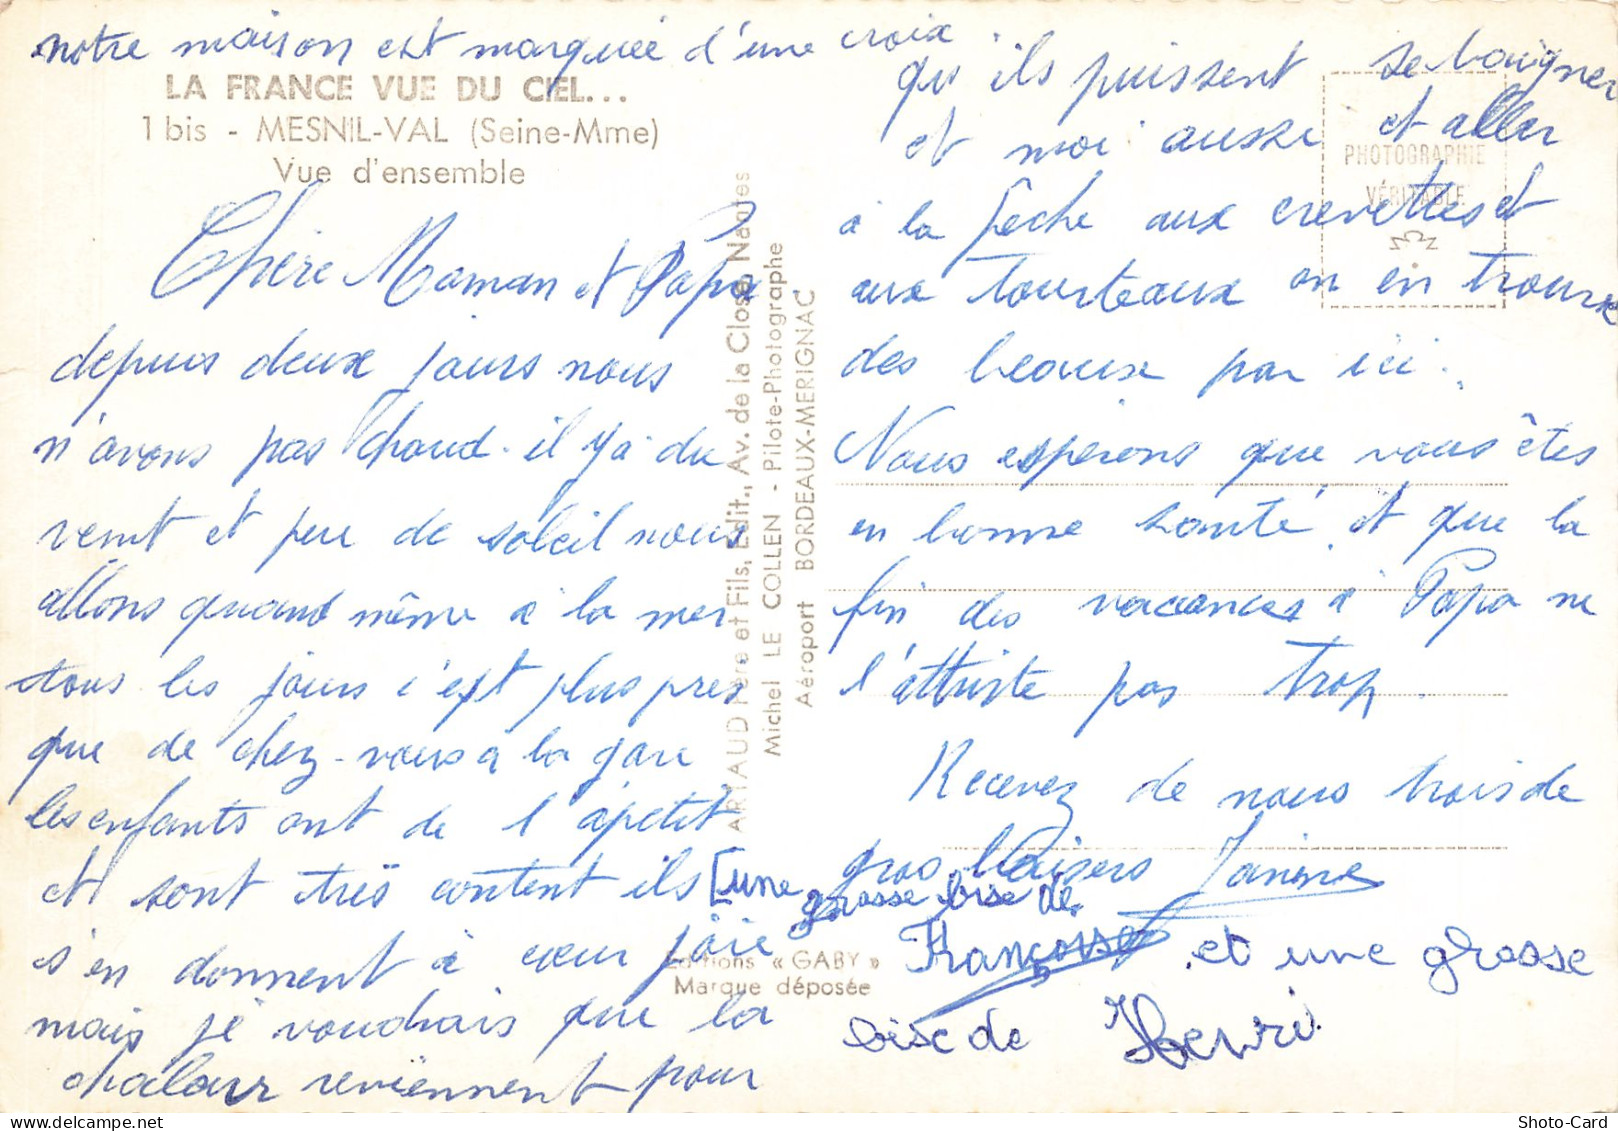 notre maison est marquée d'une croix
LA FRANCE VUE DU CIEL...
1 bis - MESNIL-VAL (Seine-Mme)
Vue d'ensemble
Chère Maman et Papa
depuis deux jours nous
n'avons pas chaud. il y a du
vent et peu de soleil nous
allons quand même à la mer
tous les jours c'est plus près
que de chez-vous a la gare
les enfants ont de l'apetit
et sont très content ils
s'en donnent à cœur joie
mais je voudrais que la
chaleur reviennent pour
ARTAUD Père et Fils, Edit., Av. de la Close, Nantes
Michel LE COLLEN - Pilote-Photographe
Aéroport BORDEAUX-MERIGNAC
Editions « GABY »
Marque déposée
PHOTOGRAPHIE
VÉRITABLE
qu'ils puissent se baigner
et moi aussi et aller
à la pêche aux crevettes et
aux tourteaux on en trouve
des beaux par ici.
Nous espérons que vous êtes
en bonne santé et que la
fin des vacances à Papa ne
l'attriste pas trop.
Recevez de nous trois de
gros baisers Janine
[une grosse bise de
Françoise et une grosse
bise de Henri
Shoto-Card